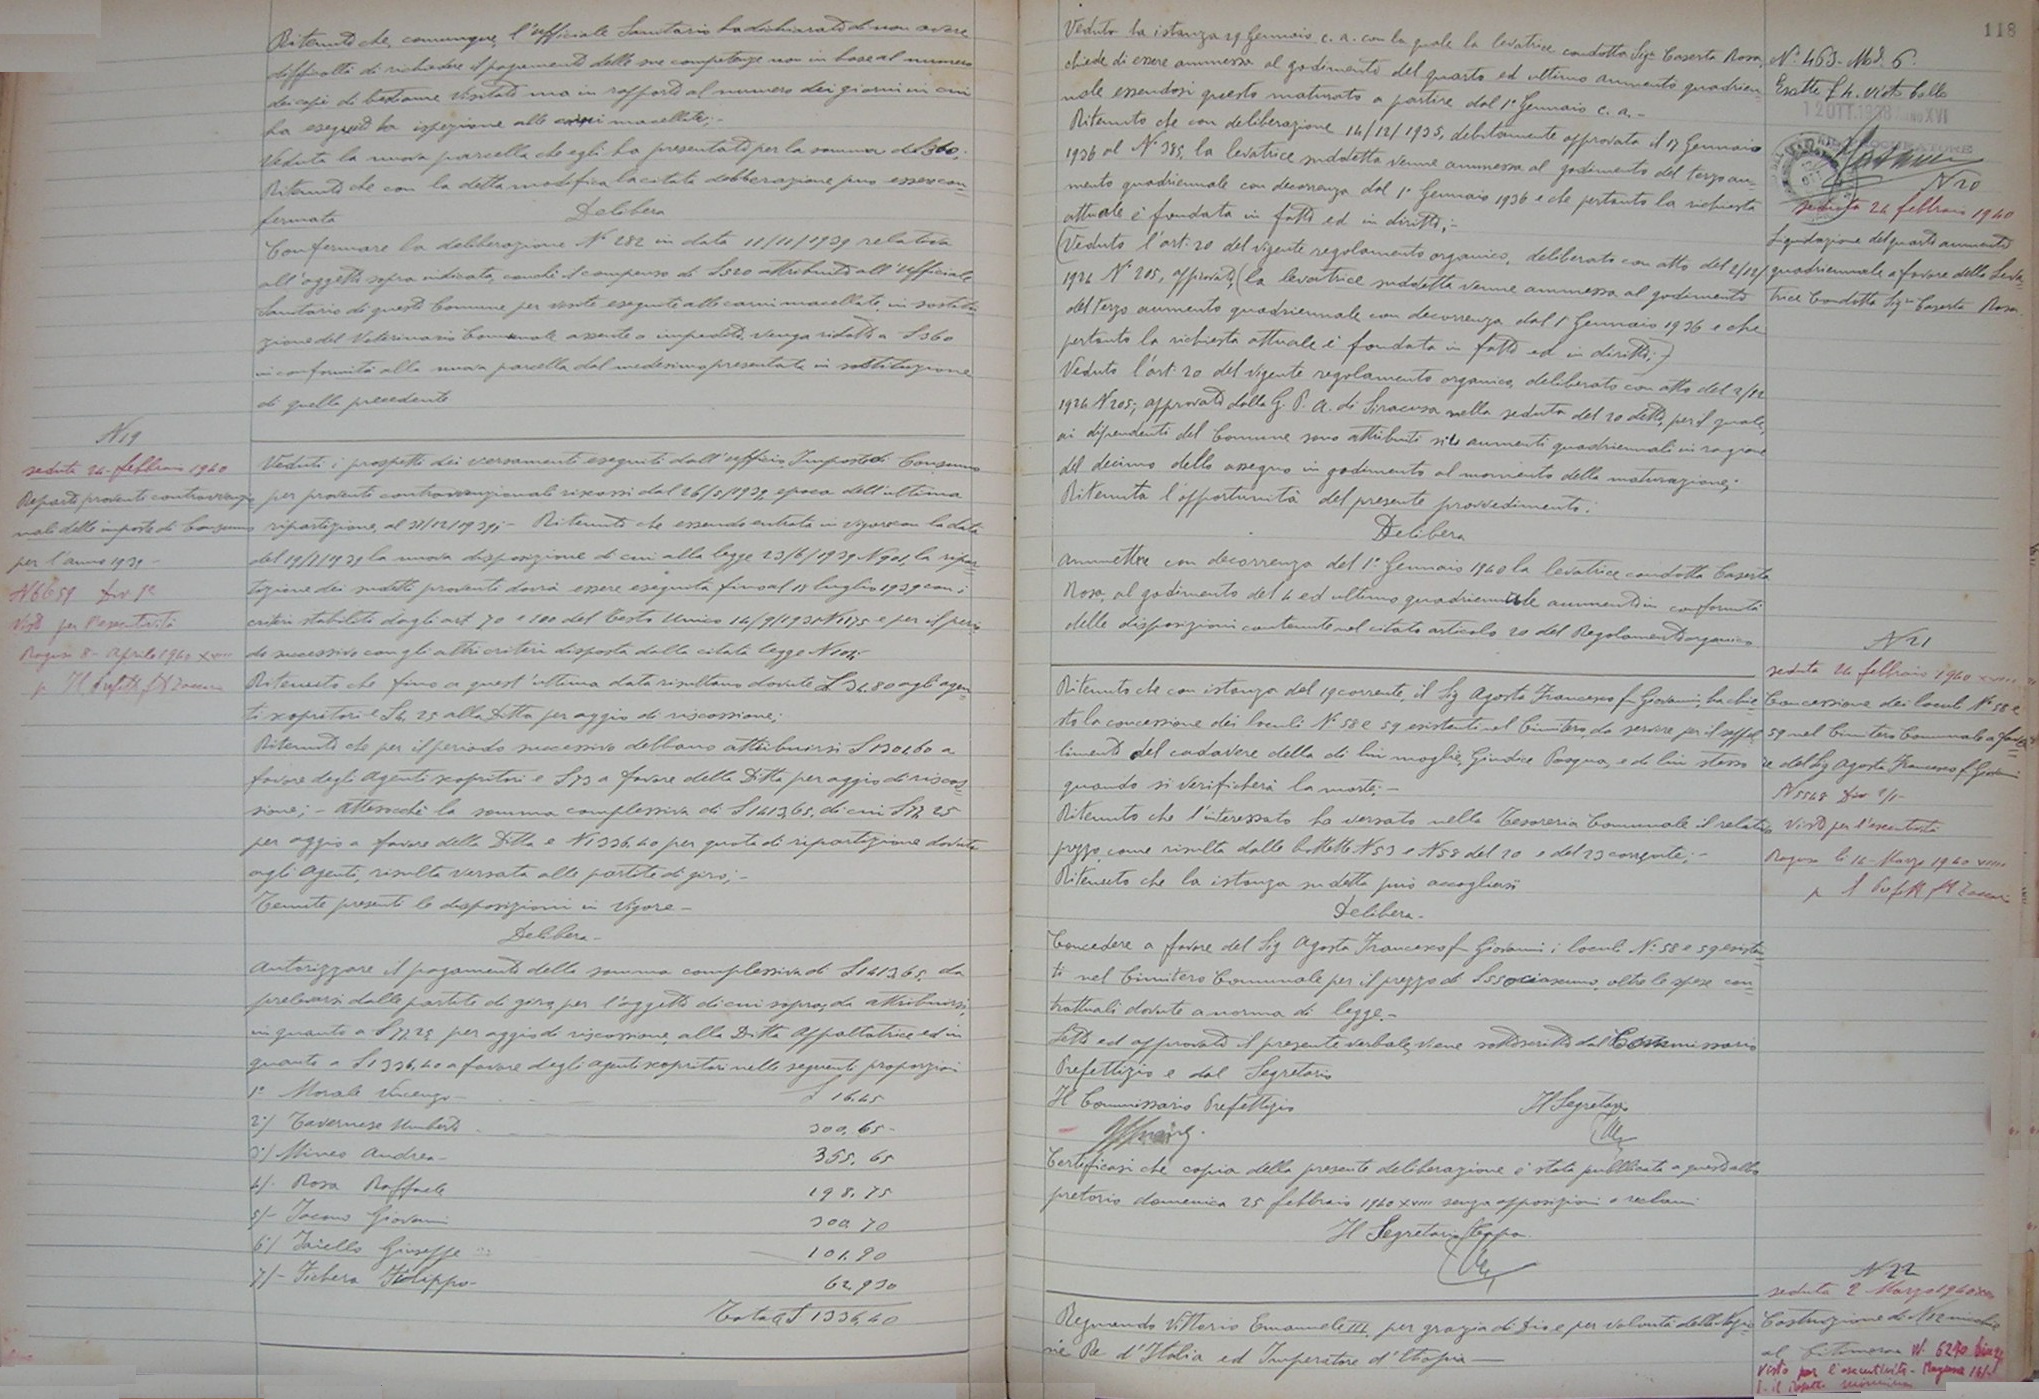 Ritenuto che, comunque, l'Ufficiale Sanitario ha dichiarato di non avere
difficoltà di richiedere il pagamento delle sue competenze non in base al numero
dei capi di bestiame visitato ma in rapporto al numero dei giorni in cui
ha eseguito la ispezione alle carni macellate;-
Veduta la nuova parcella che egli ha presentato per la somma di £ 360;
Ritenuto che con la detta modifica la citata deliberazione può essere con-
fermata
Delibera
Confermare la deliberazione N° 282 in data 11/11/1939 relativa
all'oggetto sopra indicato, cochè il compenso di £ 520 attribuito all'Ufficiale
Sanitario di questo Comune per visite eseguite alle carni macellate, in sostitu-
zione del Veterinario Comunale assente o impedito, venga ridotto a £ 360
in conformità alla nuova parcella dal medesimo presentata in sostituzione
di quella precedente
N 19
seduta 24 febbraio 1940
Reparto proventi contravvenzio
nali delle imposte di Consumo
per l'anno 1939 -
N 6659 Div 1ª
Visto per l'esecutività
Ragusa 8 - Aprile 1940 XVIII
p. Il Prefetto
Veduti i prospetti dei versamenti eseguiti dall'ufficio Imposte di Consumo
per proventi contravvenzionali riscossi dal 26/5/1939 epoca dell'ultima
ripartizione, al 31/12/1939;- Ritenuto che essendo entrata in vigore con la data
del 19/7/1939 la nuova disposizione di cui alla legge 23/6/1939 N 901, la ripar-
tizione dei sudetti proventi dovrà essere eseguita fino al 18 luglio 1939 con i
criteri stabiliti dagli art 70 e 100 del Testo Unico 14/9/1931 N 1175 e per il perio
do successivo con gli altri criteri disposta dalla citata legge
Ritenuto che fino a quest'ultima data risultano dovute £ 34.80 agli agen-
ti scopritori e £ 4.25 alla Ditta per aggio di riscossione;
Ritenuto che per il periodo successivo debbano attribuirsi £ 1301,60 a
favore degli Agenti scopritori e £ 73 a favore della Ditta per aggio di riscos-
sione;- Attesochè la somma complessiva di £ 1413,65, di cui £ 77,25
per aggio a favore della Ditta e N 1336,40 per quota di ripartizione dovuta
agli Agenti, risulta versata alle partite di giro;-
Tenute presenti le disposizioni in vigore -
Delibera -
Autorizzare il pagamento della somma complessiva di £ 1413,65, da
prelevarsi dalle partite di giro, per l'oggetto di cui sopra, da attribuirsi,
in quanto a £ 77,25 per aggio di riscossione, alla Ditta Appaltatrice ed in
quanto a £ 1336,40 a favore degli agenti scopritori nelle seguenti proporzioni
1° Morale Vincenzo - £ 16.45
2°/ Tavernese Umberto 300,65 -
3°/ Mineo Andrea - 355,65
4/- Rosa Raffaele 198.75
5/- Iacono Giovanni 300 70
6°/ Iaiello Giuseppe 101.90
7/- Fichera Filippo - 62,930
Totale £ 1336,40
118
Veduta la istanza 29 Gennaio c. a. con la quale la levatrice condotta Sigra Caserta Rosa,
chiede di essere ammessa al godimento del quarto ed ultimo aumento quadrien-
nale essendosi questo maturato a partire dal 1° Gennaio c. a. -
Ritenuto che con deliberazione 14/12/1935, debitamente approvata il 17 Gennaio
1936 al N° 385, la levatrice suddetta venne ammessa al godimento del terzo au-
mento quadriennale con decorrenza dal 1° Gennaio 1936 e che pertanto la richiesta
attuale è fondata in fatto ed in diritto;-
(Veduto l'art. 20 del vigente regolamento organico, deliberato con atto del 2/12/
1926 N° 205, approvato, (la levatrice suddetta venne ammessa al godimento
del terzo aumento quadriennale con decorrenza dal 1° Gennaio 1936 e che
pertanto la richiesta attuale è fondata in fatto ed in diritto;-)
Veduto l'art. 20 del vigente regolamento organico, deliberato con atto del 2/12
1926 N 205, approvato dalla G. P. A. di Siracusa nella seduta del 20 detto, per il quale,
ai dipendenti del Comune sono attribuiti aumenti quadriennali in ragione
del decimo dello assegno in godimento al momento della maturazione;
Ritenuta l'opportunità del presente provvedimento;
Delibera
Ammettere con decorrenza del 1° Gennaio 1940 la levatrice condotta Caserta
Rosa, al godimento del 4 ed ultimo quadriennale aumento in conformità
delle disposizioni contenute nel citato articolo 20 del Regolamento organico
N° 463 - Mod. 6.
12 OTT. 1938 Anno XVI
N 20
seduta 24 febbraio 1940
Liquidazione del quarto aumento
quadriennale a favore della Leva-
trice Condotta Sigra Caserta Rosa
N 21
seduta 24 febbraio 1940 XVIII
Concessione dei loculi N° 58 e
59 nel Cimitero Comunale a favo-
re del Sig Agosta Francesco f Giovanni
N 5548 Div 2/1-
Visto per l'esecutività
Ragusa li 14 - Marzo 1940 XVIII
p Il Prefetto
Ritenuto che con istanza del 19 corrente, il Sig Agosta Francesco fu Giovanni, ha chie-
sto la concessione dei loculi N° 58 e 59 esistenti nel Cimitero da servire per il seppel-
limento del cadavere della di lui moglie, Giudice Pasqua, e di lui stesso
quando si verificherà la morte;-
Ritenuto che l'interessato ha versato nella Tesoreria Comunale il relativo
prezzo, come risulta dalle bollette N 53 e N 58 del 20 e del 23 corrente;-
Ritenuto che la istanza sudetta può accogliersi
Delibera -
Concedere a favore del Sig Agosta Francesco fu Giovanni i loculi N° 58 e 59 esisten-
ti nel Cimitero Comunale per il prezzo di £ 550 ciascuno, oltre le spese con-
trattuali dovute a norma di legge.-
Letto ed approvato il presente verbale, viene sottoscritto dal Commissario
Prefettizio e dal Segretario
Il Commissario Prefettizio Il Segretario
Certificasi che copia della presente deliberazione è stata pubblicata a quest'albo
pretorio domenica 25 febbraio 1940 XVIII senza opposizioni o reclami
Il Segretario Capo
N 22
seduta 2 Marzo 1940 XVIII
Costruzione di N 12 nicchie
al Cimitero N. 6240
Visto per l'esecutività - Ragusa
p. il Prefetto
Regnando Vittorio Emanuele III, per grazia di Dio e per volontà della Nazio-
ne Re d'Italia ed Imperatore d'Etiopia